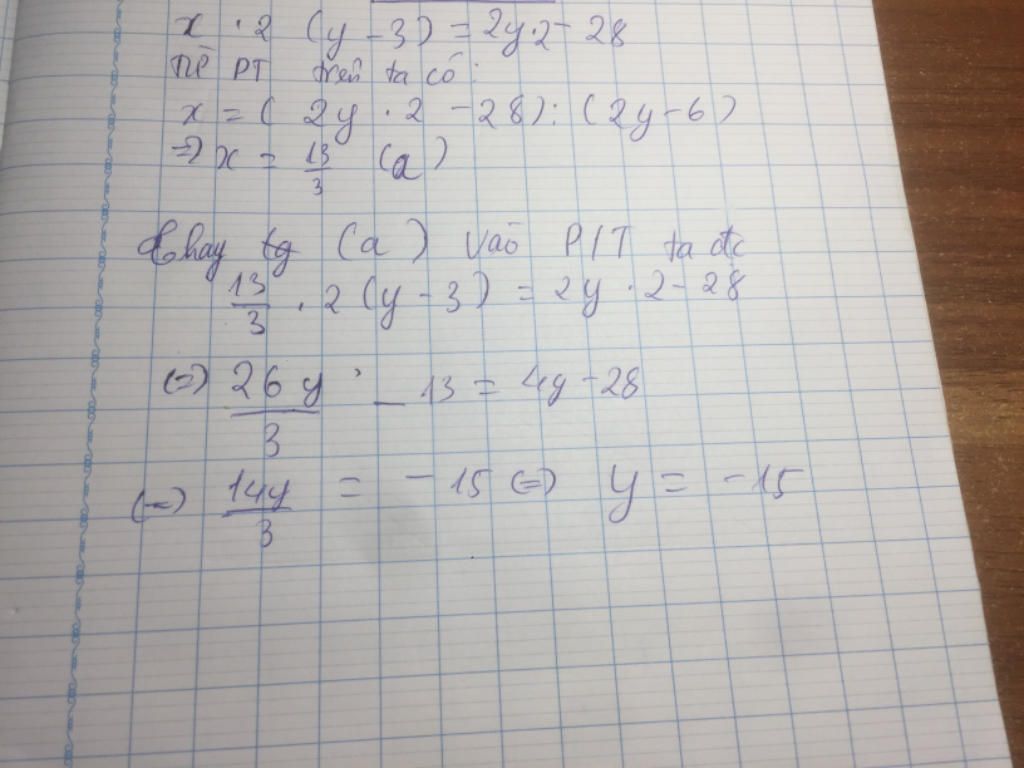 x · 2 (y - 3) = 2y · 2 - 28
Từ PT trên ta có:
x = ( 2y · 2 - 28) : (2y - 6)
=> x = 13/3 (a)
thay tg (a) vào P/T ta đc
13/3 · 2 (y - 3) = 2y · 2 - 28
(=) 26y/3 - 13 = 4y - 28
(=) 14y/3 = -15 (=) y = -15